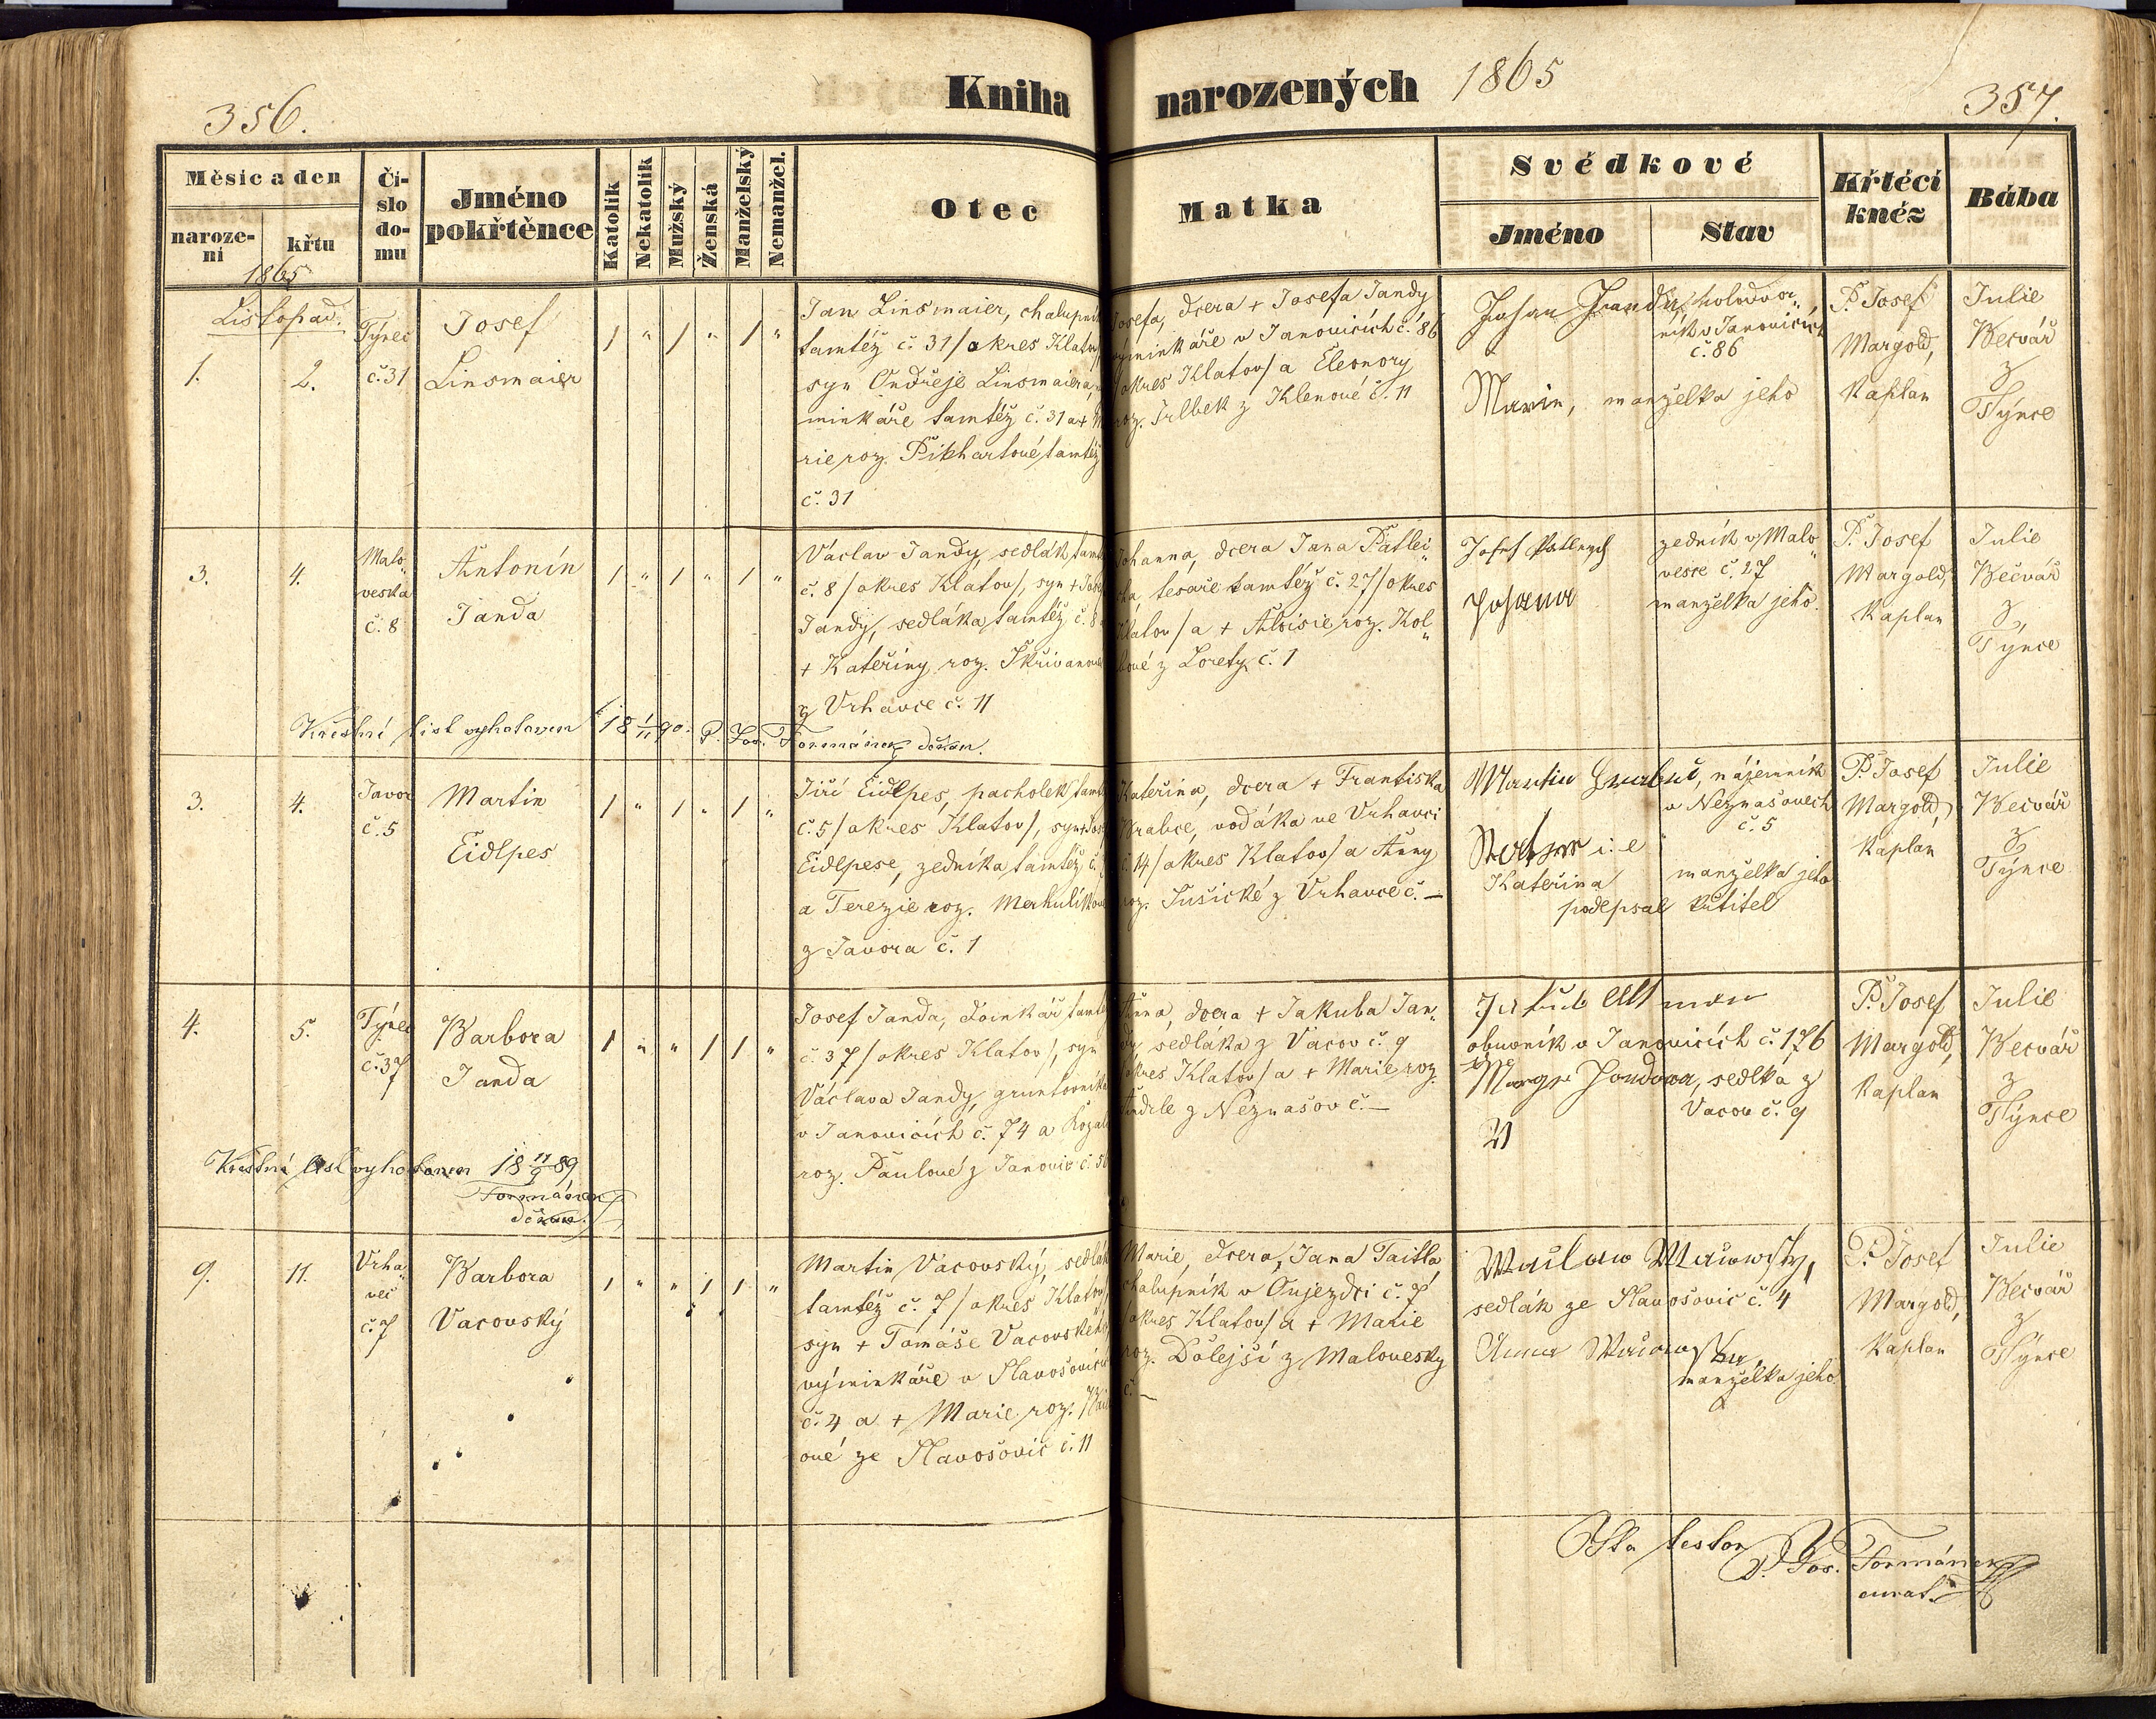 356.
Kniha
narozených 1865
357.
Měsíc a den
naroze-
ní
křtu
1865
Čí-
slo
do-
mu
Jméno
pokřtěnce
Katolík
Nekatolík
Mužský
Ženská
Manželský
Nemanžel.
Otec
Matka
Svědkové
Jméno
Stav
Křtěcí
kněz
Bába
Listopad.
1.
2.
Týnec
č. 31
Josef
Linsmaier
1 " 1 " 1 "
Jan Linsmaier, chalupník
tamtéž č. 31 /okres Klatov/
syn Ondřeje Linsmaiera,
minkáře tamtéž č. 31 a +
rie roz. Pikhartové tamtéž
č. 31
Josefa, dcera + Josefa Jandy
výminkáře v Janovicích č. 86
/okres Klatov/ a Eleonory
roz. z Klenové č. 11
Johan Janda, holodvor
ník v Janovicích
č. 86
Marie, manželka jeho
P. Josef
Margold,
Kaplan
Julie
Becvář
z
Týnce
3.
4.
Malo
veska
č. 8
Antonín
Janda
1 " 1 " 1 "
Václav Jandy, sedlák tamt
č. 8 /okres Klatov/, syn + Jose
Jandy, sedláka tamtéž č. 8
+ Kateřiny roz. Skřivanové
z Vrhavce č. 11
Johanna, dcera Jana Patlei
cha, tesaře tamtéž č. 27 /okres
Klatov/ a + Aloisie roz. Kol
lové z Lorety č. 1
Josef Patleych
Johana
zedník v Malo
vesce č. 27
manželka jeho.
P. Josef
Margold,
Kaplan
Julie
Bečvář
z
Týnce
Křestní list vyhotoven 18 1/11 90. P. Jos. Formánek děkan.
3.
4.
Javor
č. 5
Martin
Eidlpes
1 " 1 " 1 "
Jiří Eidlpes, pacholek tamt
č. 5 /okres Klatov/, syn + Jose
Eidlpese, zedníka tamtéž č.
a Terezie roz. Merhulíkové
z Javora č. 1
Kateřina, dcera + Františka
Brabce, voďáka ve Vrhavci
č. 14 /okres Klatov/ a Anny
roz. Sušické z Vrhavce č. —
Martin, nájemník
v Neznašovech
č. 5
i: e
Kateřina manželka jeho
podepsal křtitel
P. Josef
Margold,
Kaplan
Julie
Becvář
z
Týnce
4.
5.
Týnec
č. 37
Barbora
Janda
1 " " 1 1 "
Josef Janda, doinkář tamtéž
č. 37 /okres Klatov/, syn
Václava Jandy, gruntovníka
v Janovicích č. 74 a Rozali
roz. Paulové z Janovic č. 56
Anna, dcera + Jakuba Jan-
dy, sedláka z Vacov č. 9
/okres Klatov/ a + Marie roz.
Andrle z Neznašov č. —
Jakub Altman
obuvník v Janovicích č. 176
Jandova, sedlka z
Vacov č. 9
P. Josef
Margold,
Kaplan
Julie
Becvář
z
Týnce
Křestní list vyhotoven 18 11/9 89
Formánek
děkan.
9.
11.
Vrha
vec
č. 7
Barbora
Vacovský
1 " " 1 1 "
Martin Vacovský, sedlák
tamtéž č. 7 /okres Klatov/,
syn + Tomáše Vacovského,
výminkáře v Slavošovicích
č. 4 a + Marie roz.
ové ze Slavošovic č. 11
Marie, dcera, Jana Taitla
chalupník v Oujezdci č. 7
/okres Klatov/ a + Marie
roz. Dolejší z Malovesky
č. —
Waclaw Wacowsky,
sedlák ze Slavošovic č. 4
Anna
manželka jeho
P. Josef
Margold,
Kaplan
Julie
Becvář
z
Týnce
Ita testor
P. Jos. Formánek
curat.